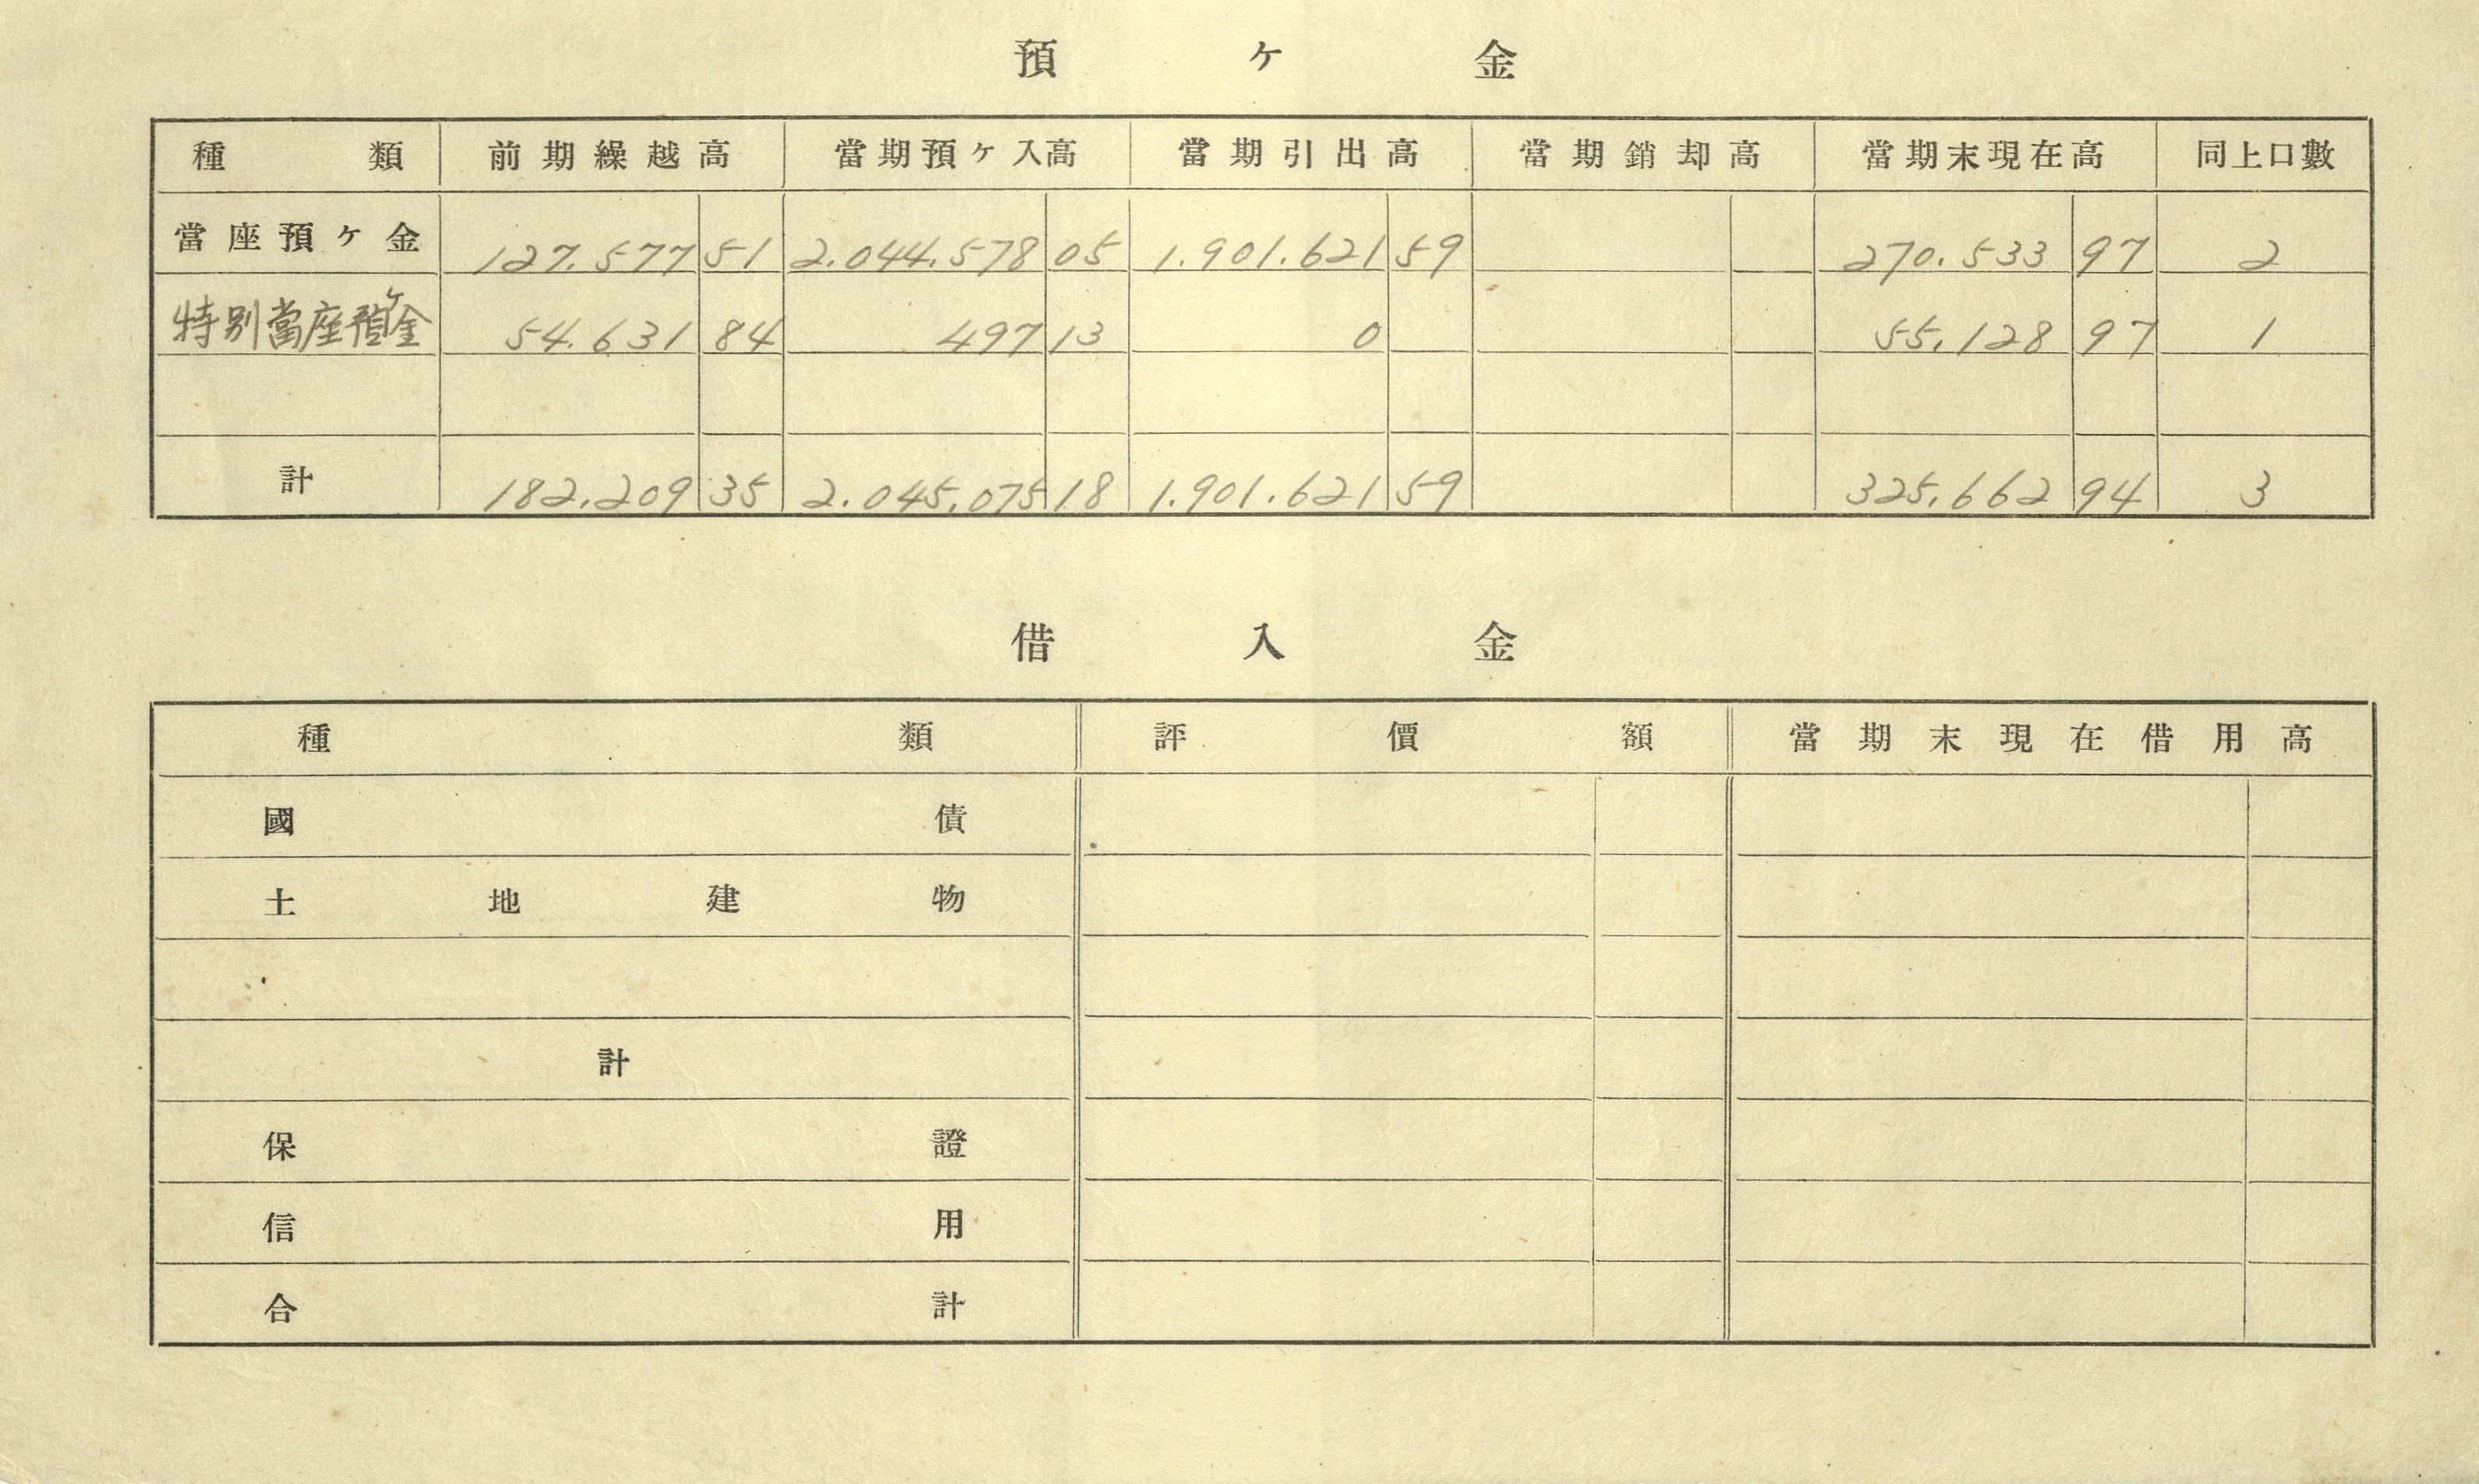 預ケ金
種類 前期繰越高 當期預ケ入高 當期引出高 當期銷却高 當期末現在高 同上口數
當座預ケ金 127.577 51 2.044.578 05 1.901.621 59 270.533 97 2
特別當座預ケ金 54.631 84 497 13 0 55.128 97 1
計 182.209 35 2.045.075 18 1.901.621 59 325.662 94 3
借入金
種類 評價額 當期末現在借用高
國債
土地建物
計
保證
信用
合計